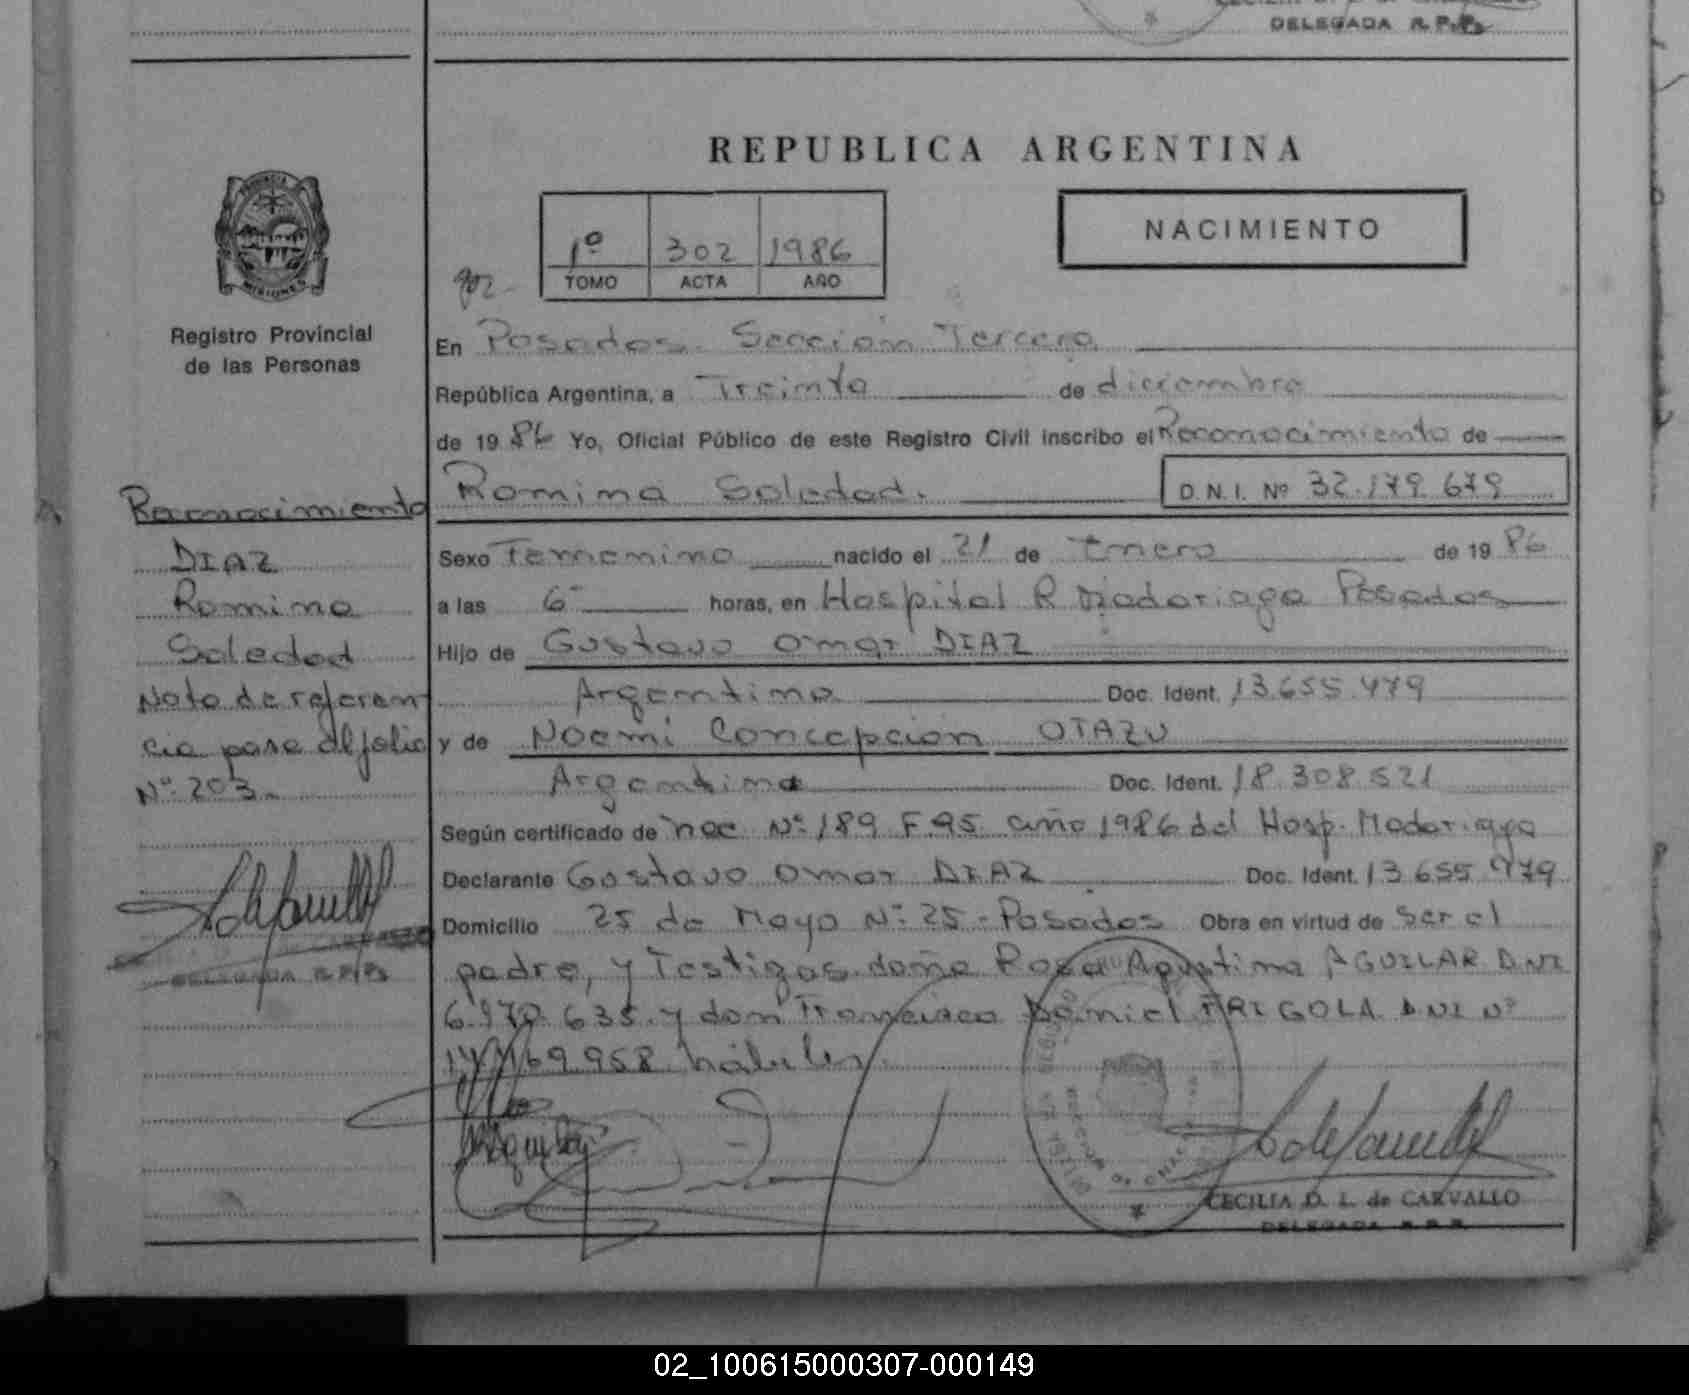 DELEGADA R.P.P.
REPUBLICA ARGENTINA
PROVINCIA
MISIONES
Registro Provincial
de las Personas
1º 302 1986
TOMO ACTA AÑO
NACIMIENTO
En Posadas. Sección Tercera
República Argentina, a Treinta de diciembre
de 1986 Yo, Oficial Público de este Registro Civil inscribo el Reconocimiento de
Romina Soledad. D.N.I. Nº 32.179.679
Sexo Femenino nacido el 21 de Enero de 1986
a las 6 horas, en Hospital R Madariaga Posadas
Hijo de Gustavo Omar DIAZ
Argentina Doc. Ident. 13.655.979
y de Noemi Concepción OTAZU
Argentina Doc. Ident. 18.308.521
Según certificado de nac Nº 189 F 95 año 1986 del Hosp. Madariaga
Declarante Gustavo Omar DIAZ Doc. Ident. 13.655.979
Domicilio 25 de Mayo Nº 25 - Posadas Obra en virtud de ser el
padre, y Testigos doña Rosa Agustina AGUILAR DNI
6.970.635 y don Francisco Daniel FRIGOLA DNI Nº
169.958 hábiles.
Reconocimiento
DIAZ
Romina
Soledad
Nota de referen
cia pase al folio
Nº 203.
DELEGADA R.P.P.
CECILIA D. L. de CARVALLO
DELEGADA R.P.P.
02_100615000307-000149